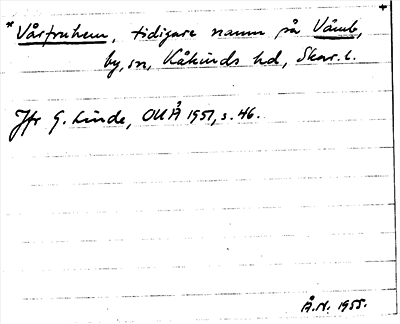 *Vårfruhem, tidigare namn på Våmb,
by, sn, Kåkinds hd, Skar. l.
Jfr G. Linde, OUÅ 1951, s. 46.
Å.N. 1955.